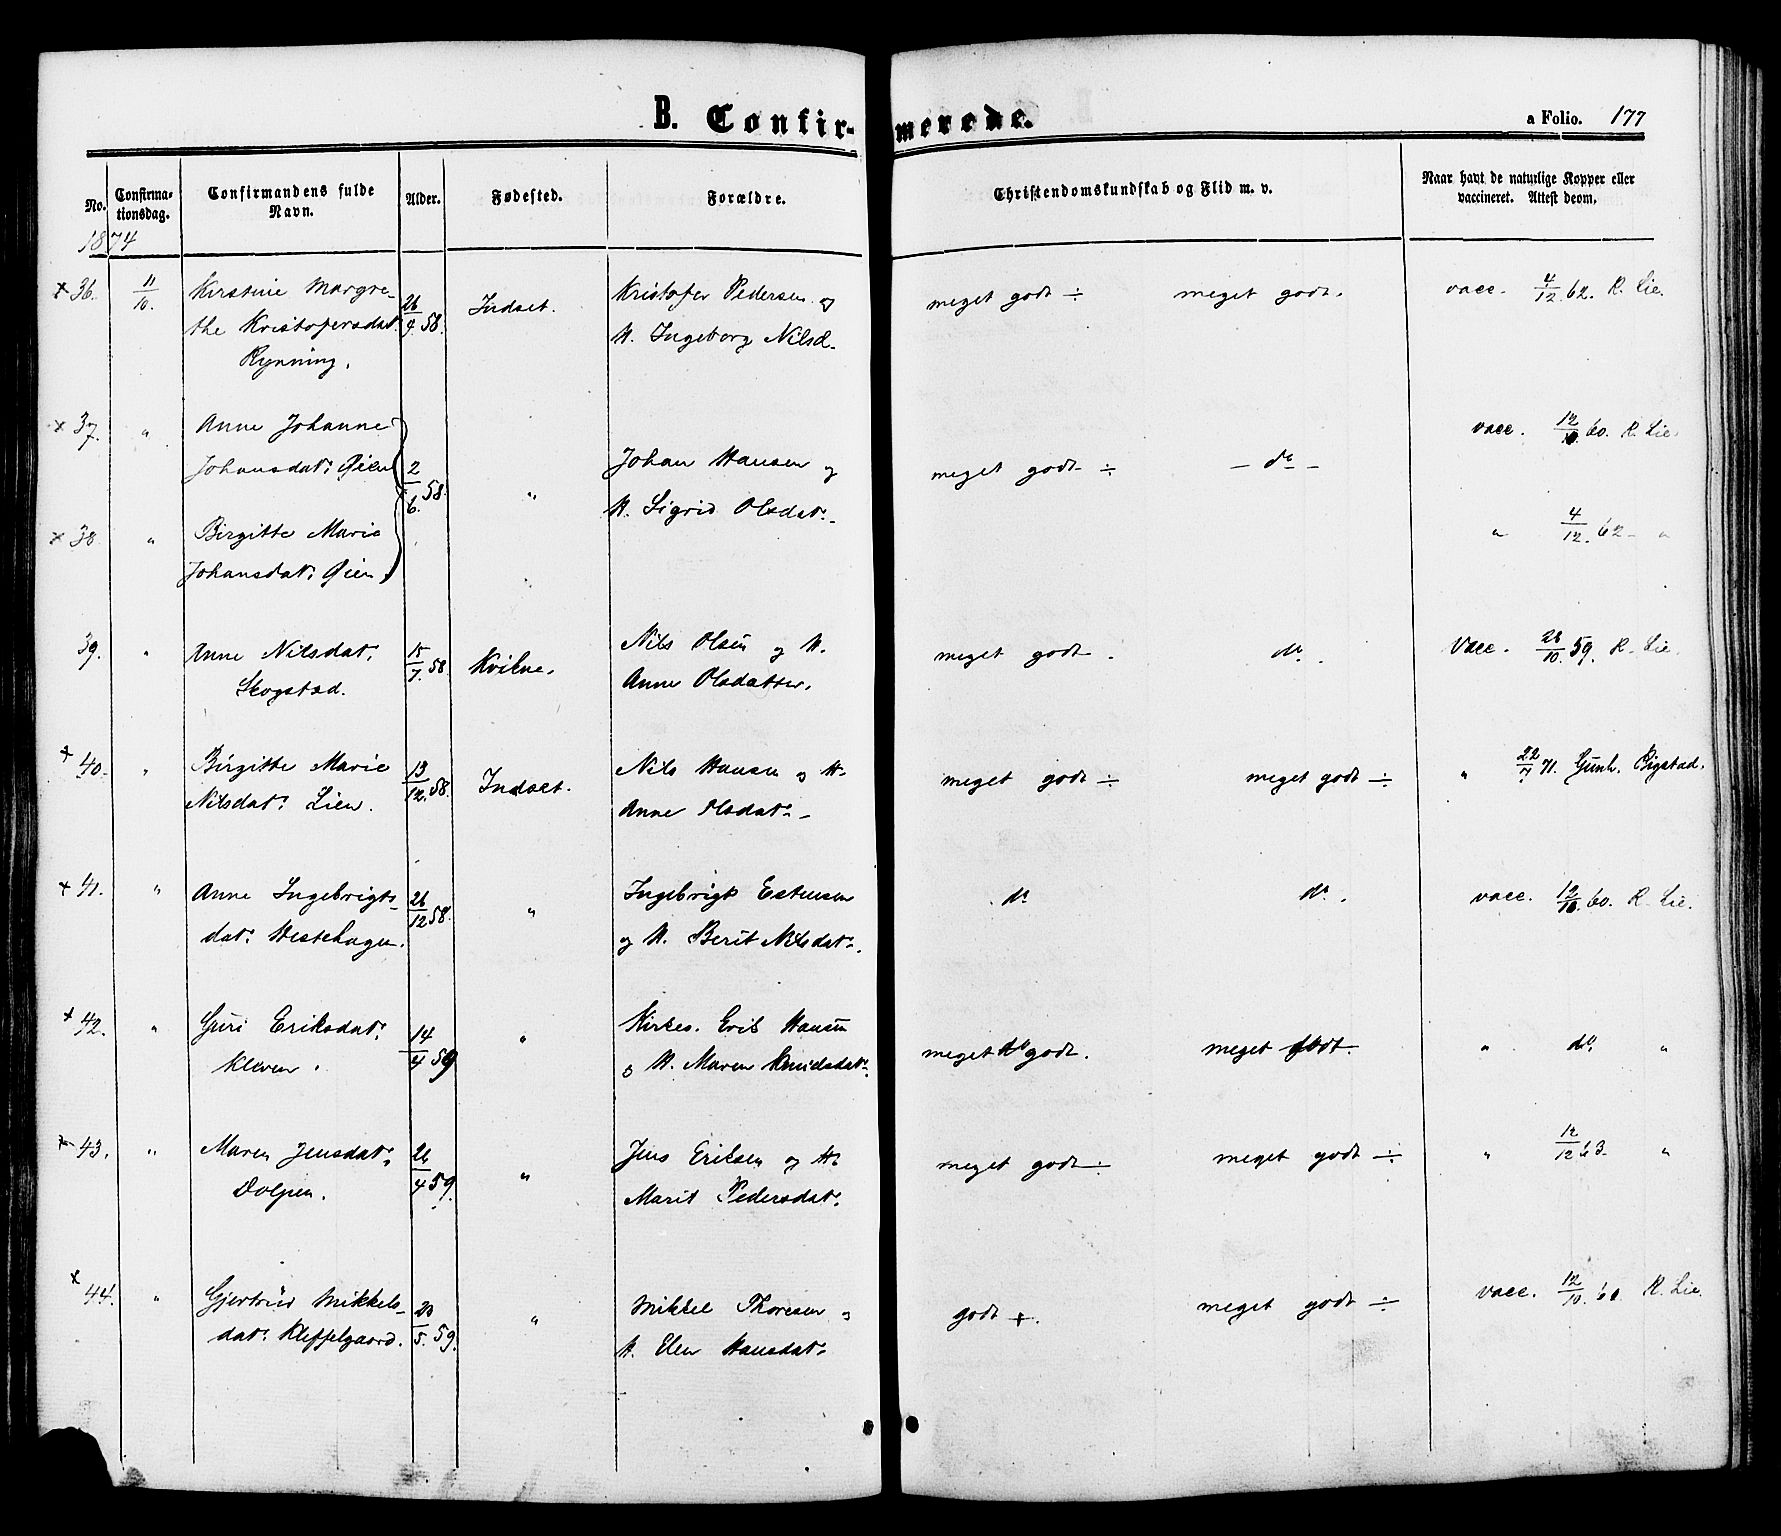 B. Confirmerede.
a Folio. 177
No. Confirmationsdag. Confirmandens fulde Navn. Alder. Fødested. Forældre. Christendomskundskab og Flid m. v. Naar havt de naturlige Kopper eller vaccineret. Attest deom.
1874
× 36. 11/10. Kirstine Margre- 26/4. 58. Indset. Kristofer Pedersen og meget godt ÷ meget godt. vacc. 4/12. 62. R. Lie.
the Kristofersdat. H. Ingeborg Nilsd.
Rynning.
× 37. " Anne Johanne vacc. 12/10. 60. R. Lie.
Johansdat. Øien 2/6. 58. " Johan Hansen og meget godt ÷ – do –
H. Sigrid Olsdat.
× 38. " Birgitte Marie " 4/12. 62 "
Johansdat. Øien "
39. " Anne Nilsdat. 15/7. 58 Kvikne. Nils Olsen og H. meget godt. do. Vacc. 28/10. 59. R. Lie.
Skogstad. Anne Olsdatter.
+ 40. " Birgitte Marie 13/12. 58. Indset. Nils Hansen og H. meget godt ÷ meget godt ÷ " 22/7 71. Gunh. Rigstad.
Nilsdat. Lien. Anne Olsdat.
+ 41. " Anne Ingebrigts- 26/12 58. " Ingebrigt Estensen do do. vacc. 12/10. 60. R. Lie.
dat. Hestehagen. og H. Berit Nilsdat.
+ 42. " Guri Eriksdat. 14/4 59 " Kirkes. Erik Hansen meget godt. meget godt. " do. "
Kleven. og H. Maren Knudsdat.
× 43. " Maren Jensdat. 26/4 59. " Jens Eriksen og H. meget godt ÷ meget godt ÷ " 12/12 63 "
Dolpen. Marit Pedersdat.
× 44. " Gjertrud Mikkels- 20/5. 59. " Mikkel Thoresen og godt +. meget godt ÷ vacc. 12/10. 60 R. Lie.
dat. Kleffelgaard. H. Elen Hansdat.